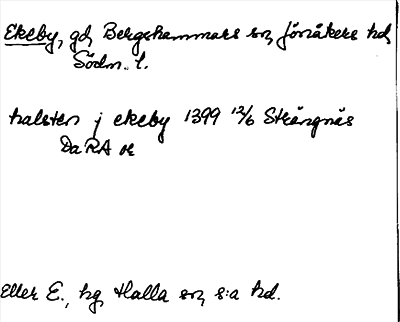 Ekeby, gd, Bergshammars sn, Jönåkers hd,
Södm. l.
halsten j ekeby 1399 12/6 Strängnäs
Da RA or
Eller E., hg, Halla sn, s:a hd.